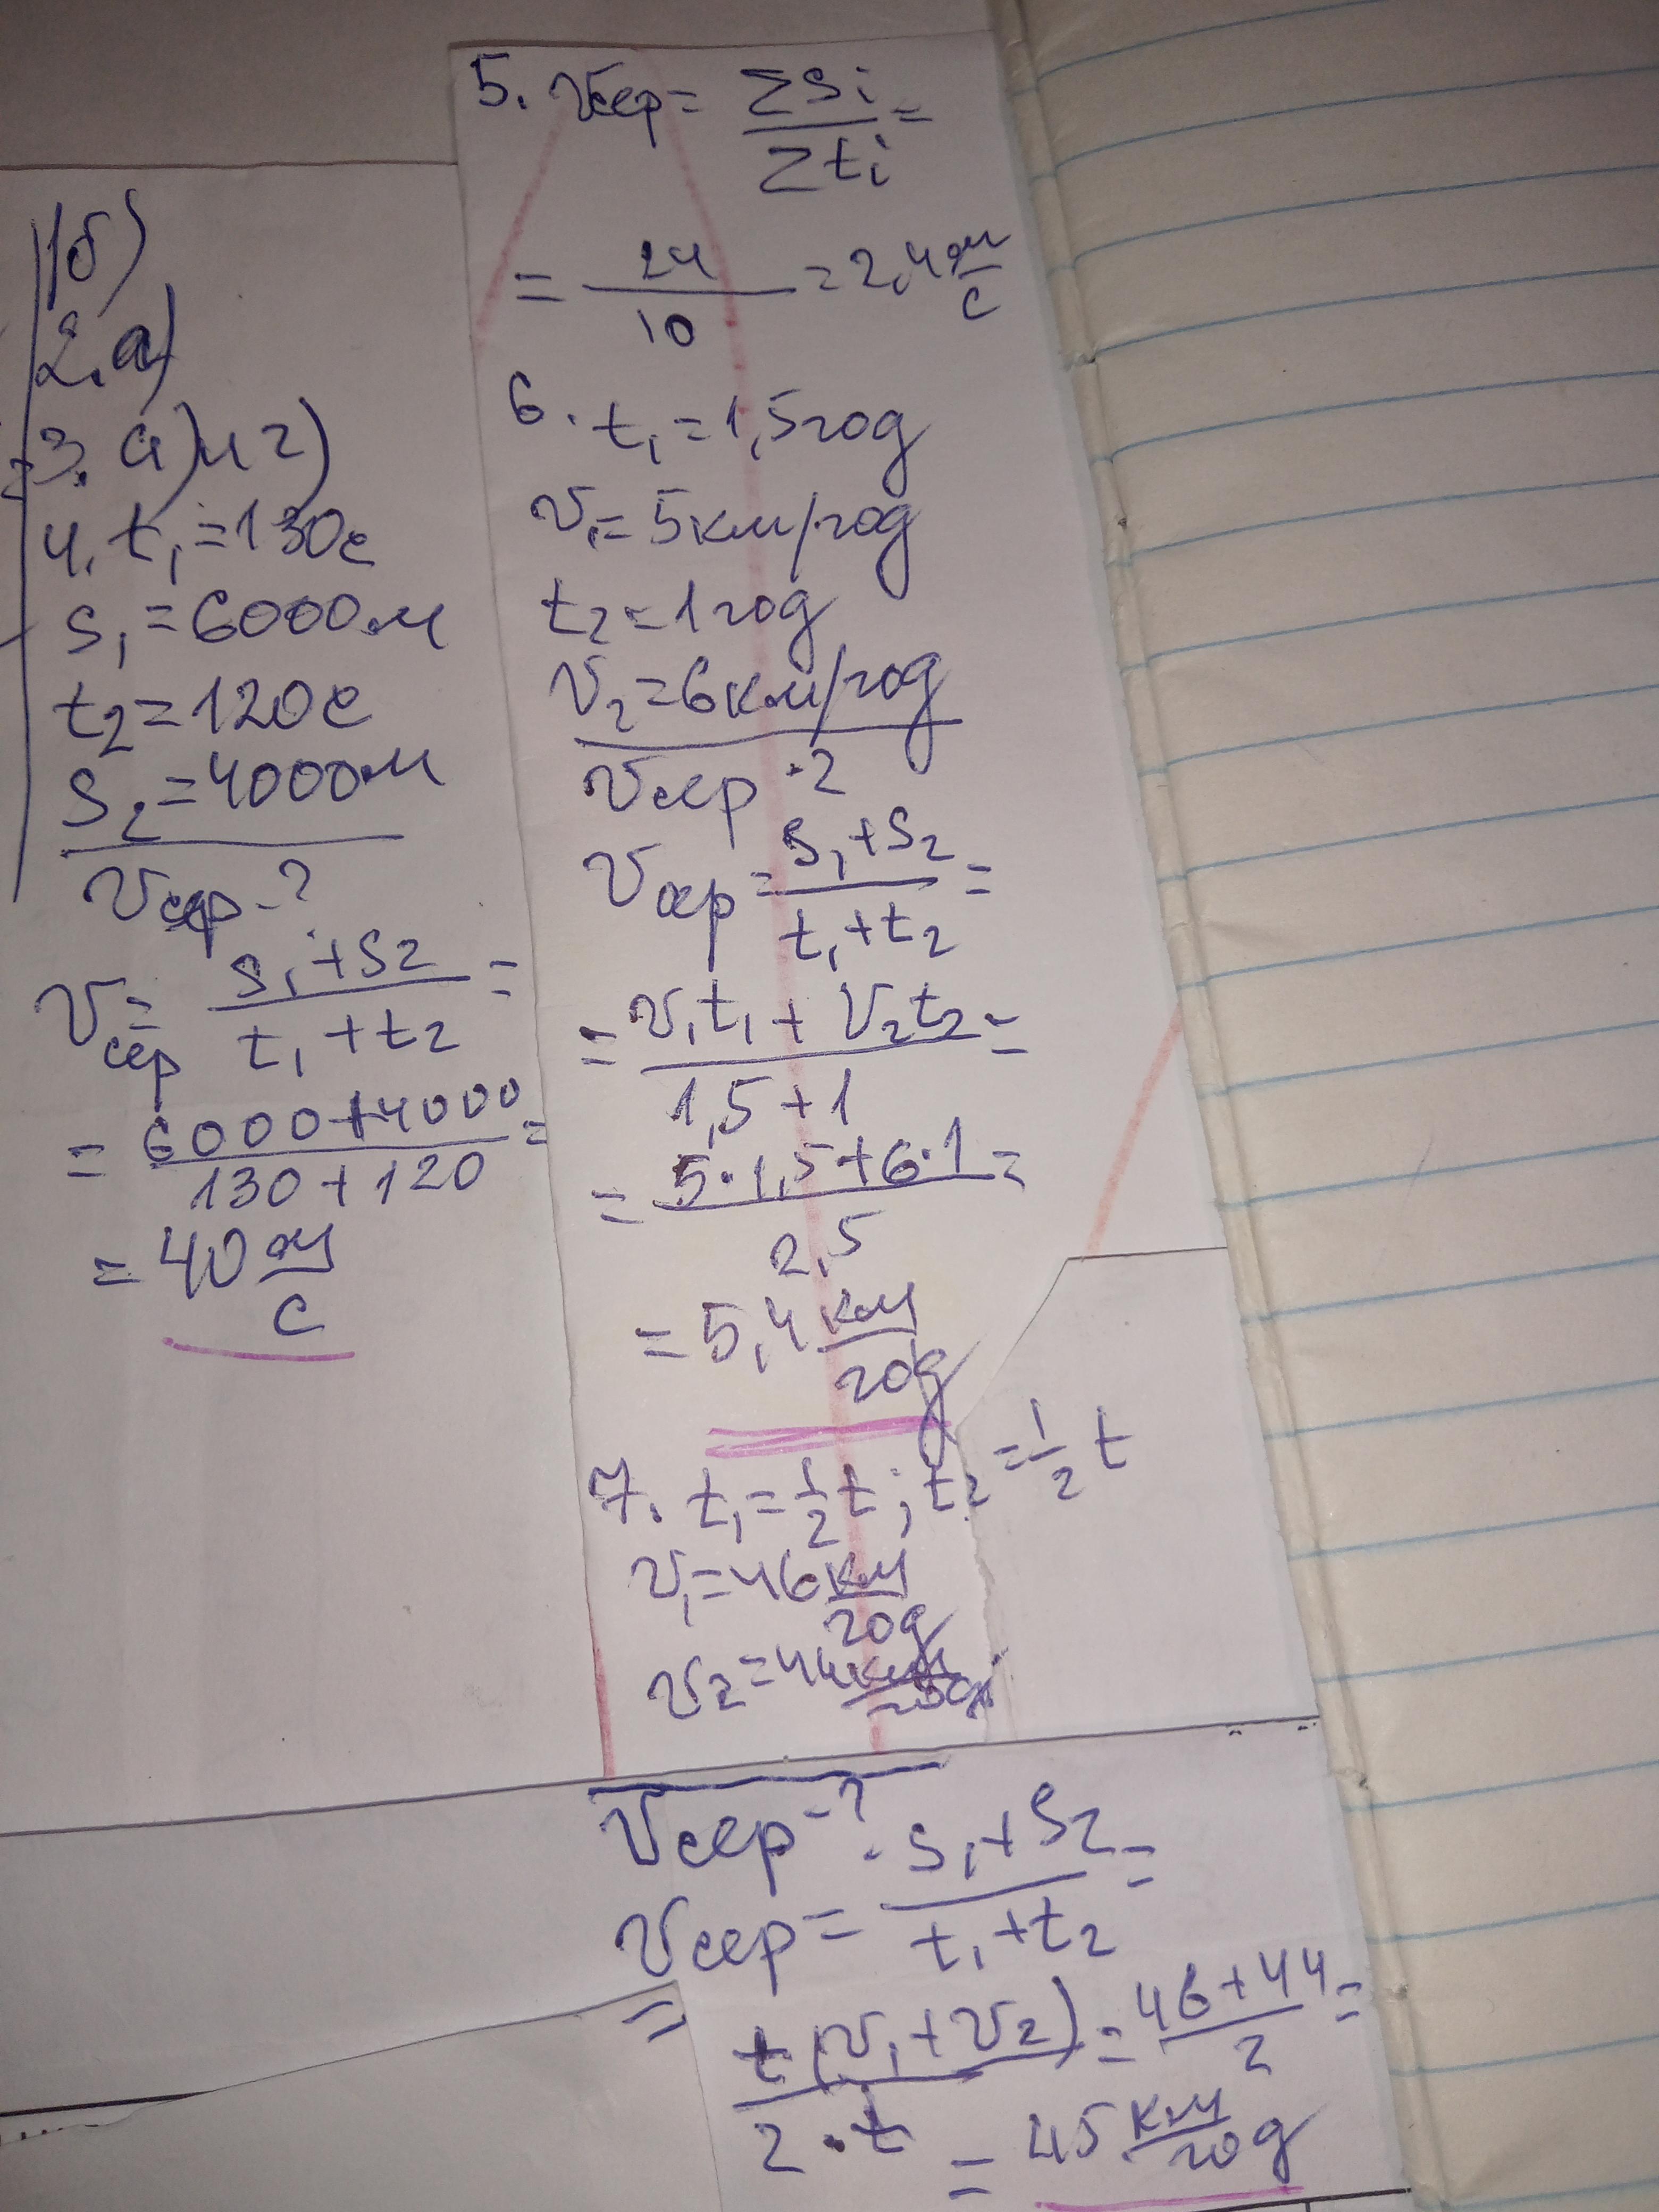 1б)
2.а)
3. а) и г)
4. t₁=130с
s₁=6000м
t₂=120с
s₂=4000м
vсер-?
vсер= s₁+s₂ / t₁+t₂ =
= 6000+4000 / 130+120 =
= 40 м/с
5. vсер= Σsi / Σti =
= 24 / 10 = 2,4 м/с
6. t₁=1,5год
v₁=5км/год
t₂=1год
v₂=6км/год
vсер-?
vсер= s₁+s₂ / t₁+t₂ =
= v₁t₁+v₂t₂ / 1,5+1 =
= 5·1,5+6·1 / 2,5 =
= 5,4 км/год
7. t₁=1/2 t; t₂=1/2 t
v₁=46 км/год
v₂=44 км/год
vсер-?
vсер= s₁+s₂ / t₁+t₂ =
= t(v₁+v₂) / 2·t = 46+44 / 2 =
= 45 км/год